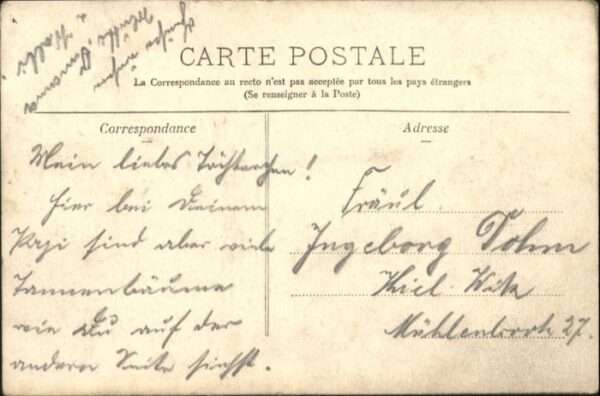 CARTE POSTALE
La Correspondance au recto n'est pas acceptée par tous les pays étrangers
(Se renseigner à la Poste)
Correspondance
Adresse
Mein liebes Töchterchen!
Hier bei Deinem
Papi sind aber viele
Tannenbäume
wie Du auf der
andern Seite siehst.
Fräul.
Ingeborg Dohm
Kiel-Wik
27.